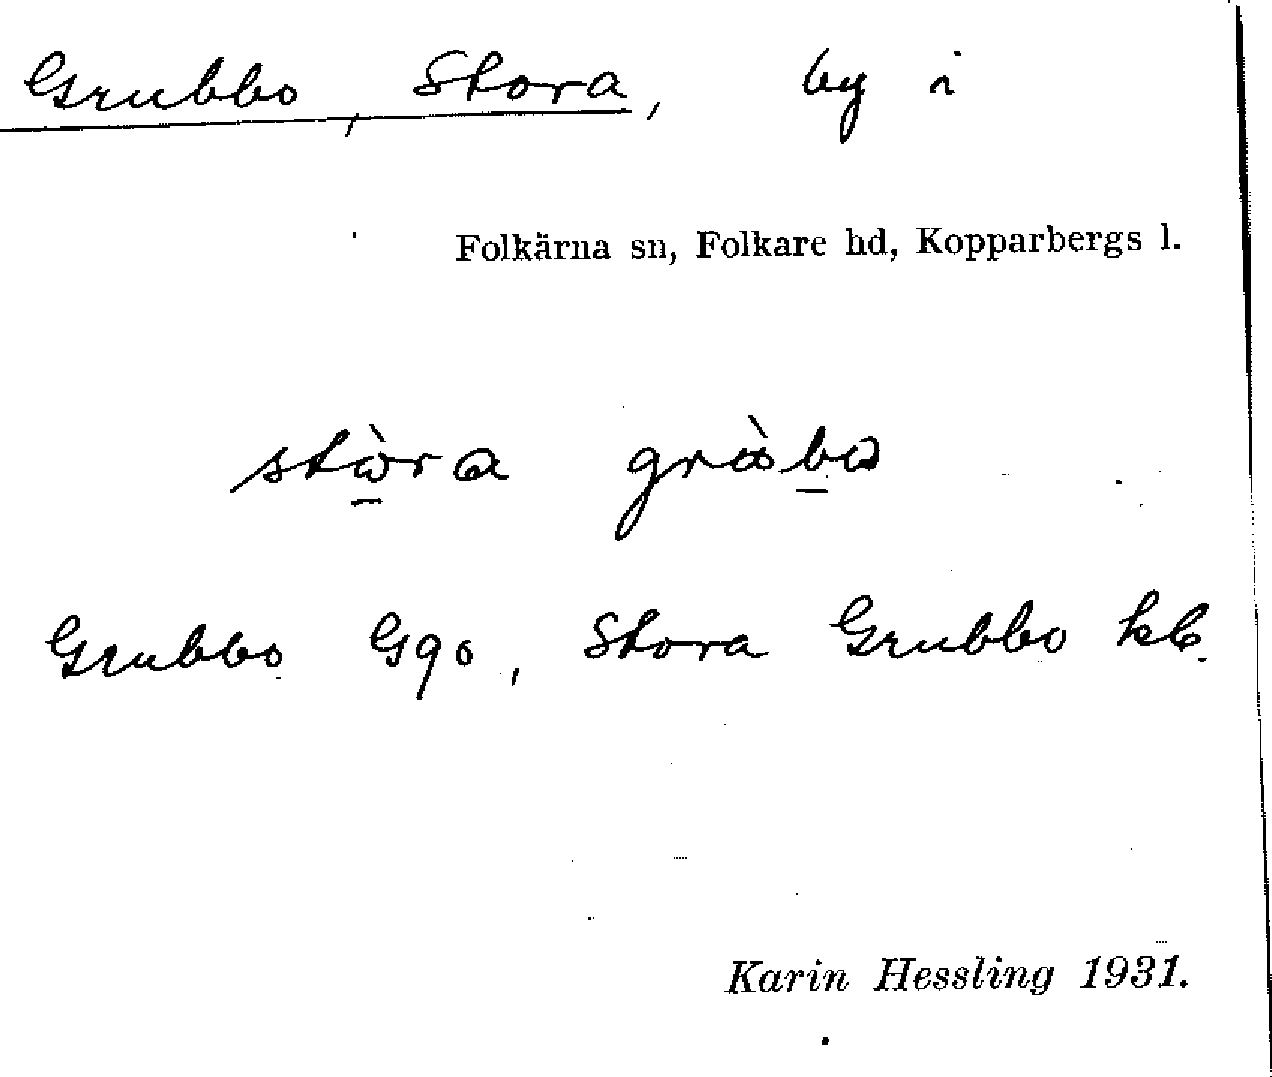 Grubbo, Stora, by i
Folkärna sn, Folkare hd, Kopparbergs l.
stòra gràbo
Grubbo Gqo, Stora Grubbo kb.
Karin Hessling 1931.